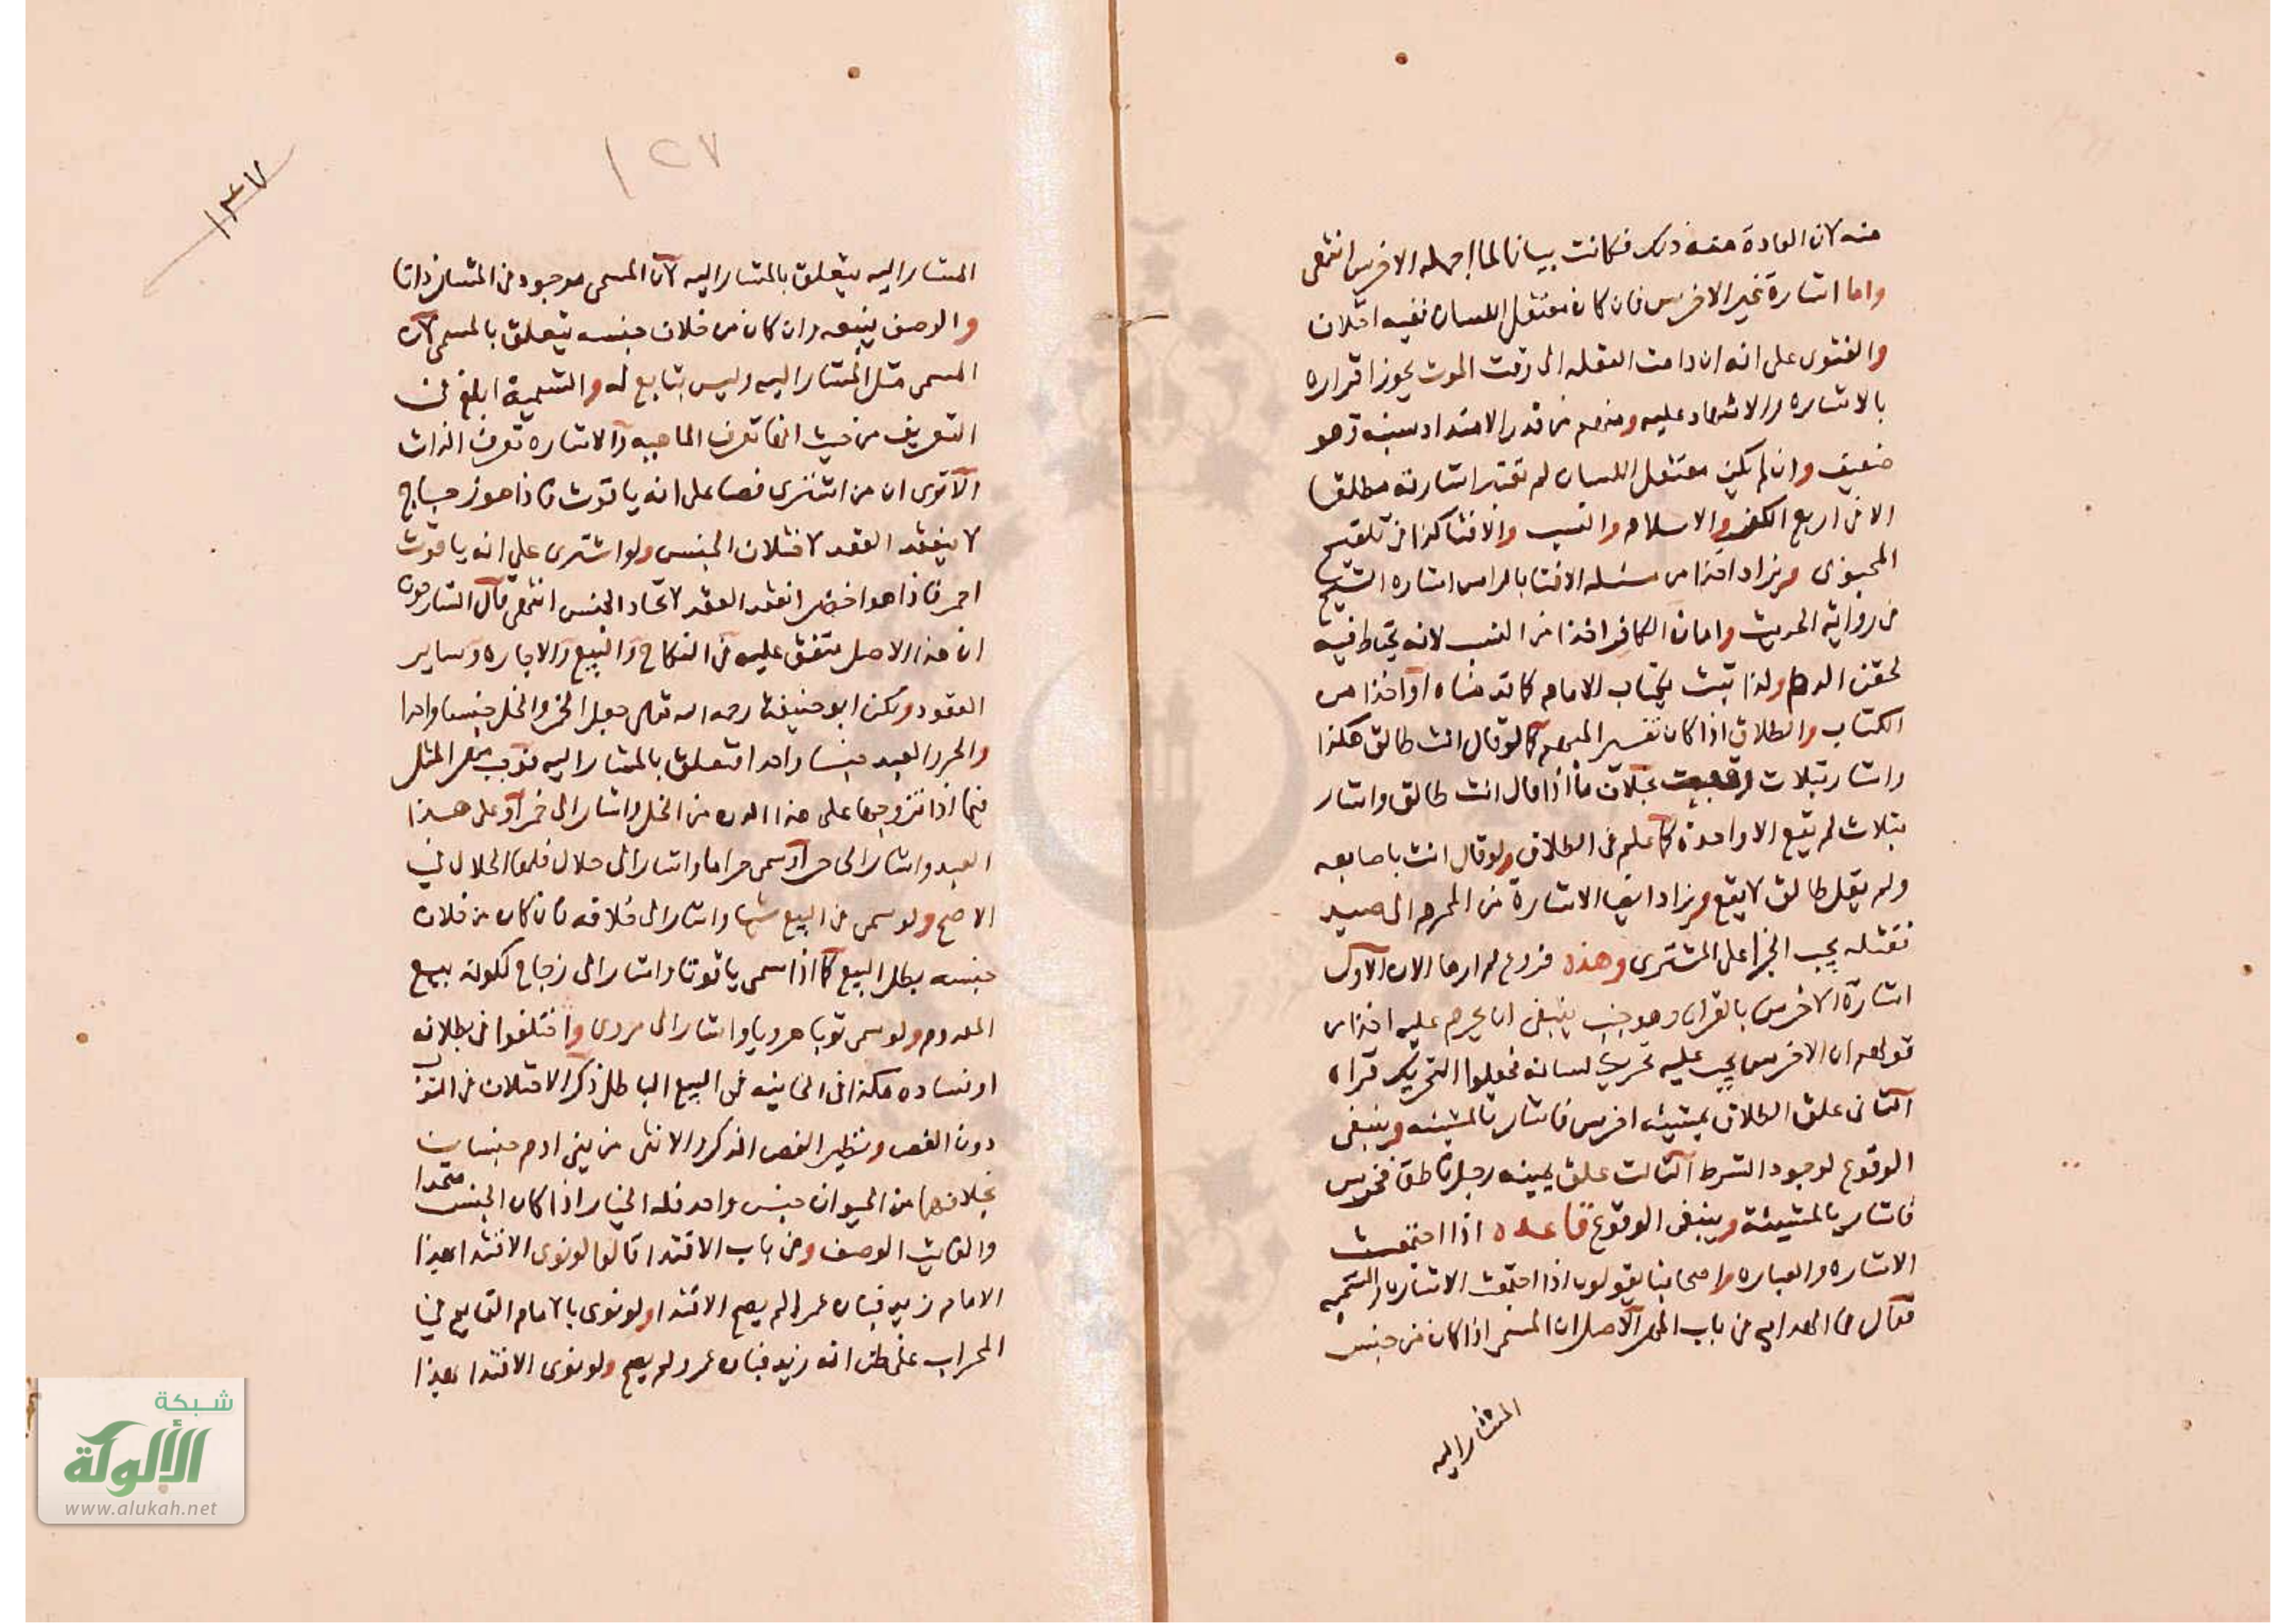 منه لان العادة منه ذلك فكانت بيانا لما اجمله الاخرس انتهى
واما اشارة غير الاخرس فان كان معتقل اللسان ففيه اختلاف
والفتوى على انه ان دامت العقله الى وقت الموت يجوز اقراره
بالاشاره والاشهاد عليه ومنهم من قدر الامتداد بسنة وهو
ضعيف وان لم يكن معتقل اللسان لم تعتبر اشارته مطلقا
الا في اربع الكفر والاسلام والنسب والافتا كذا في تلقيح
المحبوبى ويزاد اخذا من مسئله الافتا بالراس اشاره الشيخ
في رواية الحديث وامان الكافر اخذا من النسب لانه يحتاط فيه
لحقن الدم ولذا ثبت بكتاب الامام كما قدمناه او اخذا من
الكتاب والطلاق اذا كان تفسير المبهم كما لو قال انت طالق هكذا
واشار بثلاث وقعت بخلاف ما اذا قال انت طالق واشار
بثلاث لم يقع الا واحدة كما علم في الطلاق ولو قال انت باصابعه
ولم يقل طالق لا يقع ويزاد ايضا الاشارة من المحرم الى صيد
فقتله يجب الجزا على المشترى وهذه فروع لم ارها الان الاول
اشارة الاخرس بالقران وهو جنب ينبغى ان يحرم عليه اخذا من
قولهم ان الاخرس يجب عليه تحريك لسانه فجعلوا التحريك قراه
الثانى علق الطلاق بمشيئة اخرس فاشار بالمشيئه وينبغى
الوقوع لوجود الشرط الثالث علق بمشيئه رجل ناطق فخرس
فاشار بالمشيئة وينبغى الوقوع قاعده اذا اجتمعت
الاشاره والعباره واصحابنا يقولون اذا اجتمعت الاشارة والتسميه
فقال في الهدايه من باب المهر الاصل ان المسمى اذا كان من جنس
المشار اليه
١٢٧
١٣٧
المشار اليه يتعلق بالمشار اليه لان المسمى موجود في المشار ذاتا
والوصف يتبعه وان كان من خلاف جنسه يتعلق بالمسمى لان
المسمى مثل المشار اليه وليس بتابع له والتسمية ابلغ في
التعريف من حيث انها تعرف الماهيه والاشاره تعرف الذات
الا ترى ان من اشترى فصا على انه ياقوت فاذا هو زجاج
لا ينعقد العقد لاختلاف الجنس ولو اشترى على انه ياقوت
احمر فاذا هو اخضر انعقد العقد لاتحاد الجنس انتهى قال الشارحون
ان هذا الاصل متفق عليه في النكاح والبيع والاجاره وساير
العقود ولكن ابو حنيفة رحمه الله تعالى جعل الخمر والخل جنسا واحدا
والحر والعبد جنسا واحدا فتعلق بالمشار اليه فوجب مهر المثل
فيما اذا تزوجها على هذا الدن من الخل واشار الى خمر او على هذا
العبد واشار الى حر او سمى حراما واشار الى حلال فلها الحلال في
الاصح ولو سمى في البيع شيا واشار الى خلافه فان كان من خلاف
جنسه بطل البيع كما اذا سمى ياقوتا واشار الى زجاج لكونه بيع
المعدوم ولو سمى ثوبا هرويا واشار الى مروى واختلفوا في بطلانه
او فساده هكذا في الخانيه في البيع الباطل ذكر الاختلاف في الثوب
دون الفص ونظير الفص الذكر والانثى من بنى ادم جنسان
بخلافهما من الحيوان جنس واحد فله الخيار اذا كان الجنس متحدا
والفايت الوصف وفي باب الاقتدا قالوا لو نوى الاقتدا بهذا
الامام زيد فبان عمرا لم يصح الاقتدا ولو نوى بالامام القايم في
المحراب على ظن انه زيد فبان عمرو لم يصح ولو نوى الاقتدا بهذا
شبكة
الألوكة
www.alukah.net